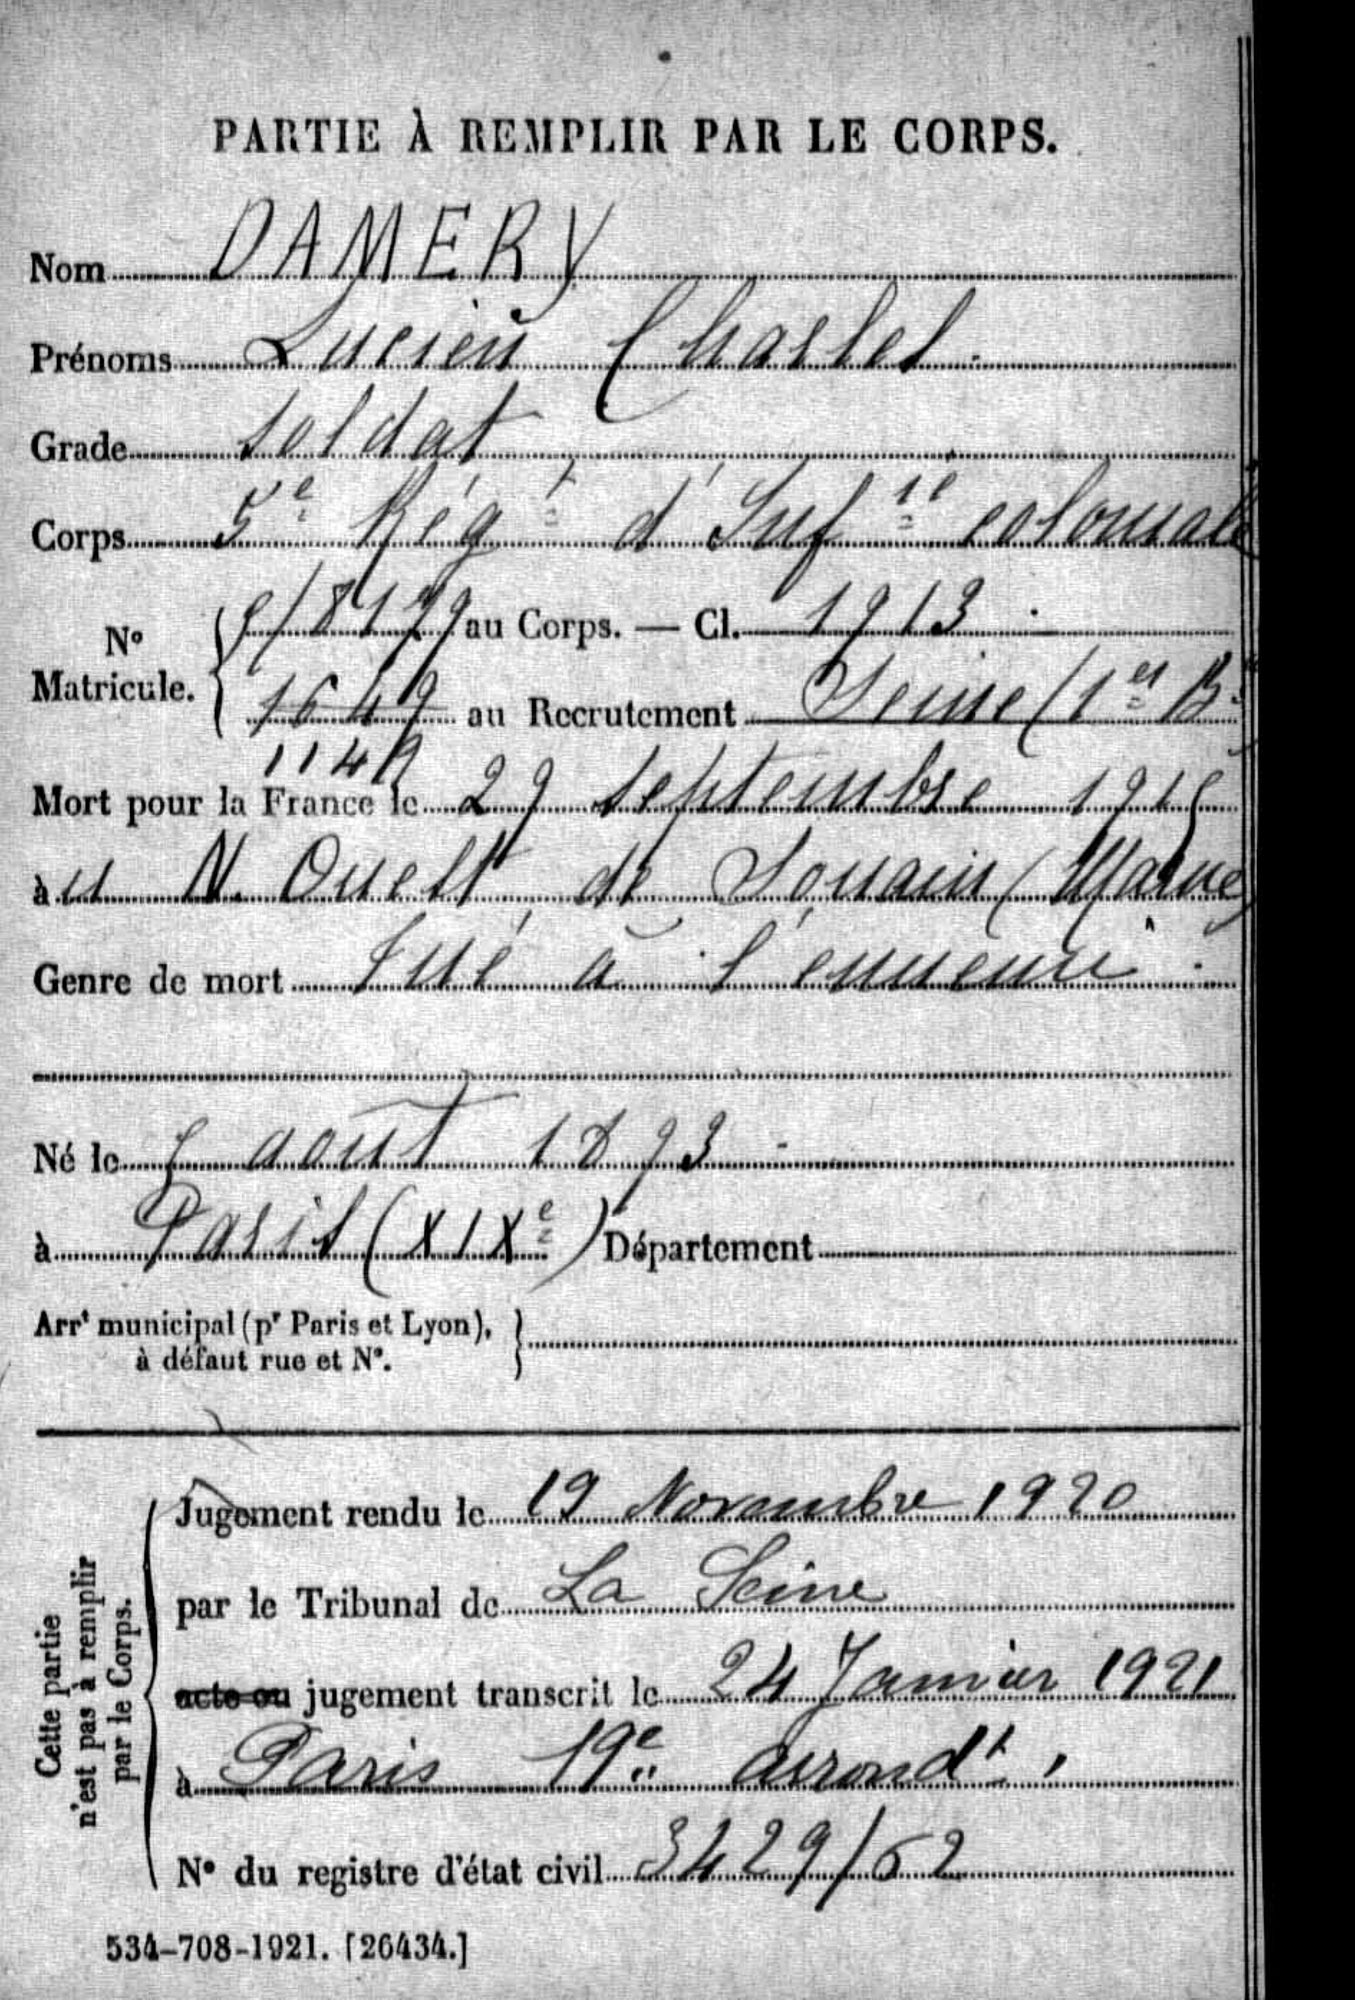 PARTIE À REMPLIR PAR LE CORPS.
Nom DAMERY
Prénoms Lucien Charles.
Grade soldat
Corps 5e Régt d'Infie coloniale
N° Matricule. au Corps. — Cl. 1913.
1649 au Recrutement Seine (1er B.
1149
Mort pour la France le 29 septembre 1915
à u N. Ouest de Souain (Marne)
Genre de mort Tué à l'ennemi.
Né le août 1893
à Paris (XIXe) Département
Arrt municipal (pr Paris et Lyon),
à défaut rue et N°.
Cette partie
n'est pas à remplir
par le Corps.
Jugement rendu le 19 Novembre 1920
par le Tribunal de La Seine
acte ou jugement transcrit le 24 Janvier 1921
à Paris 19e arrondt.
N° du registre d'état civil 3429/62
534-708-1921. [26434.]